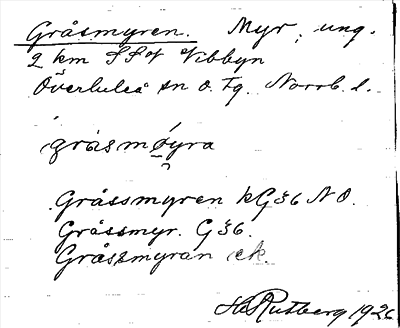 Gråsmyren. Myr, ung.
2 km SSV Vibbyn
Överluleå sn o. tg. Norrb. l.
gråsmøyra
Gråssmyren kG36 NO.
Gråssmyr. G36.
Gråssmyran ek.
H. Rutberg 1926